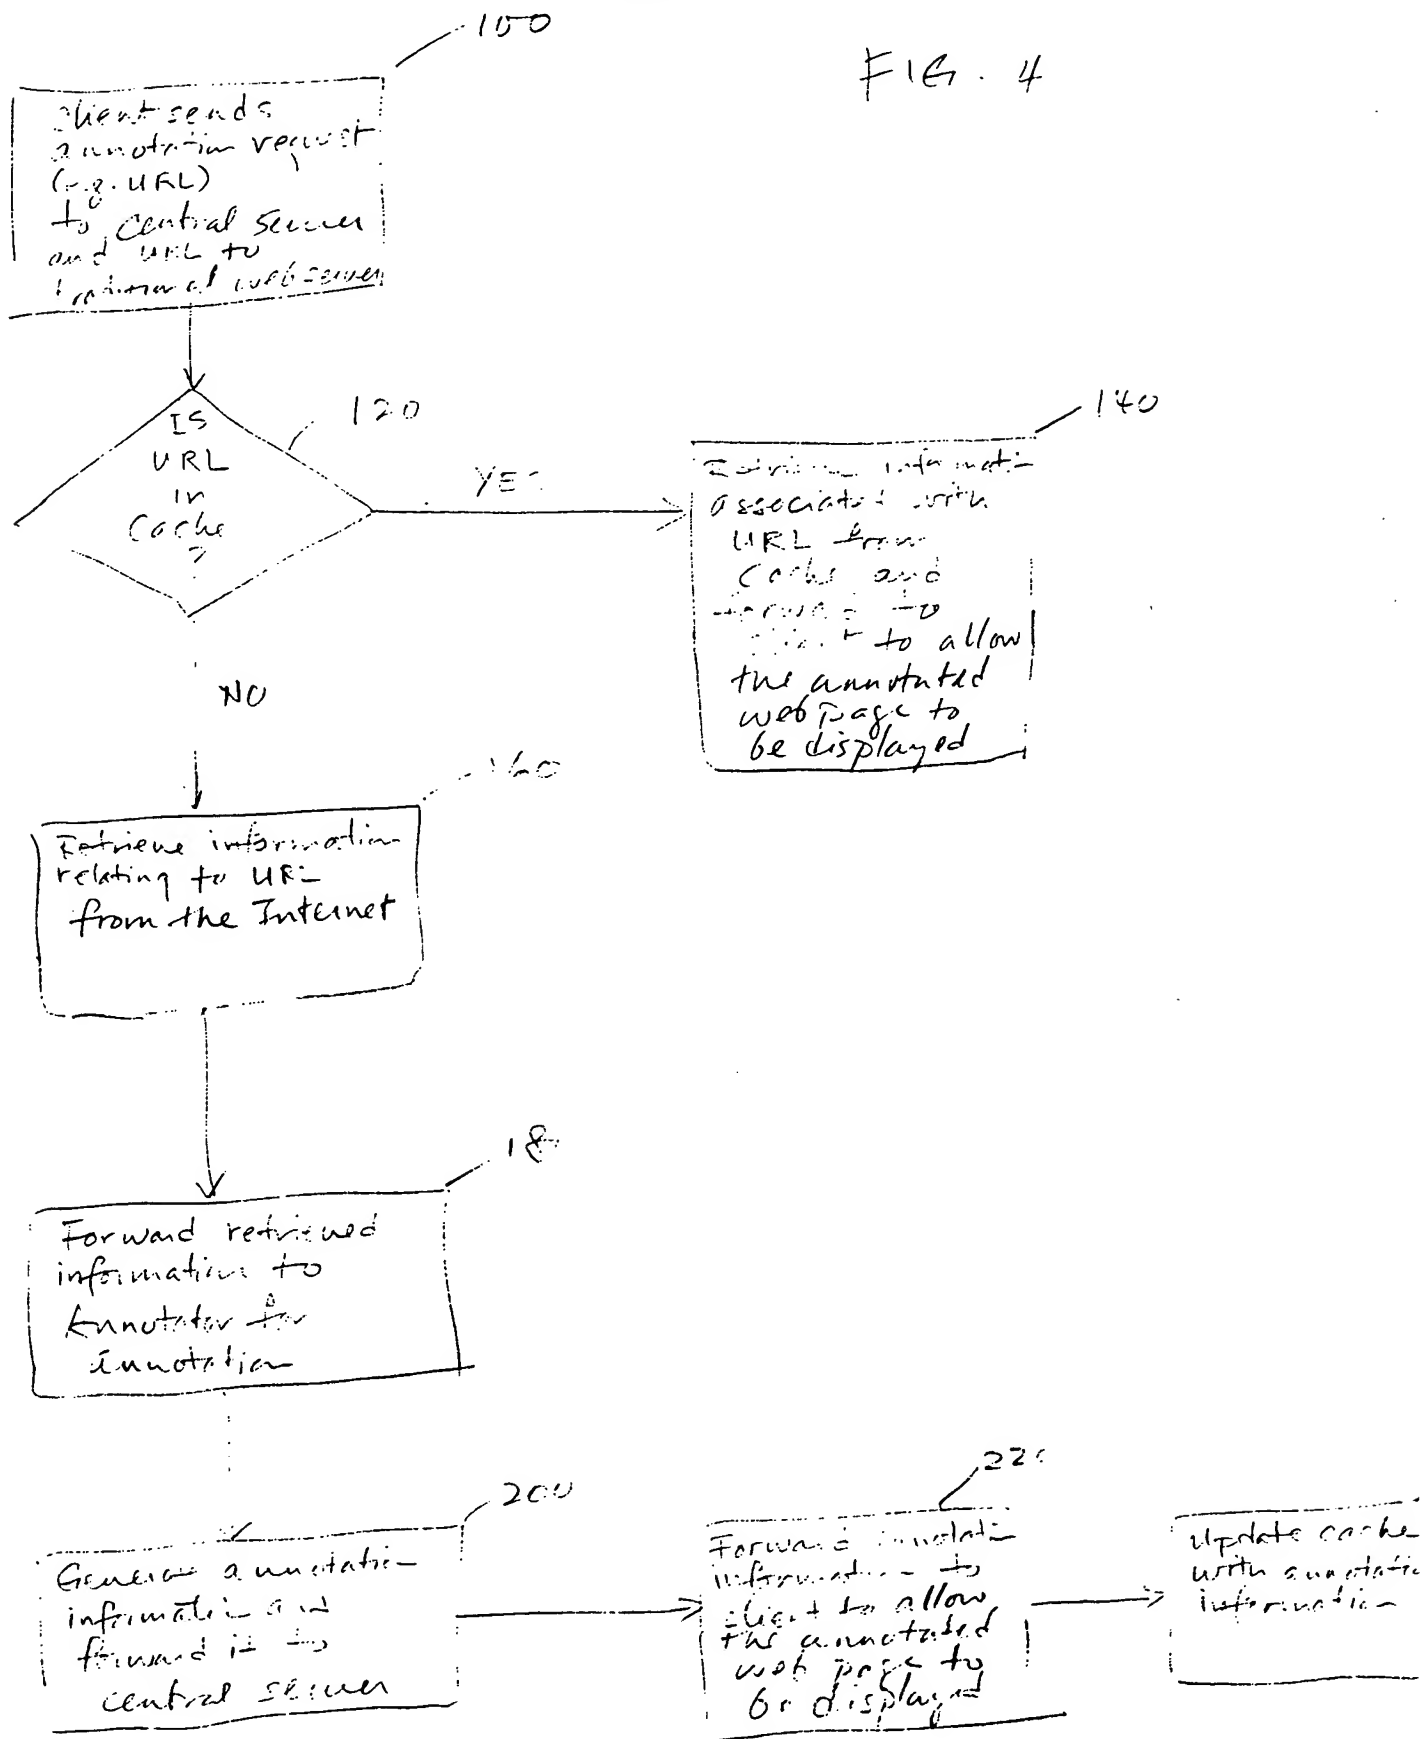 100
FIG. 4
Client sends
annotation request
(e.g. URL)
to central server
and URL to
traditional webserver
IS
URL
in
Cache
?
120
YES
140
Retrieve informati
associated with
URL from
Cache and
forward to
client to allow
the annotated
web page to
be displayed
NO
160
Retrieve information
relating to URL
from the Internet
18
Forward retrieved
information to
Annotator for
annotation
200
Generate annotation
information and
forward it to
central server
22
Forward annotation
information to
client to allow
the annotated
web page to
be displayed
Update cache
with annotatio
information